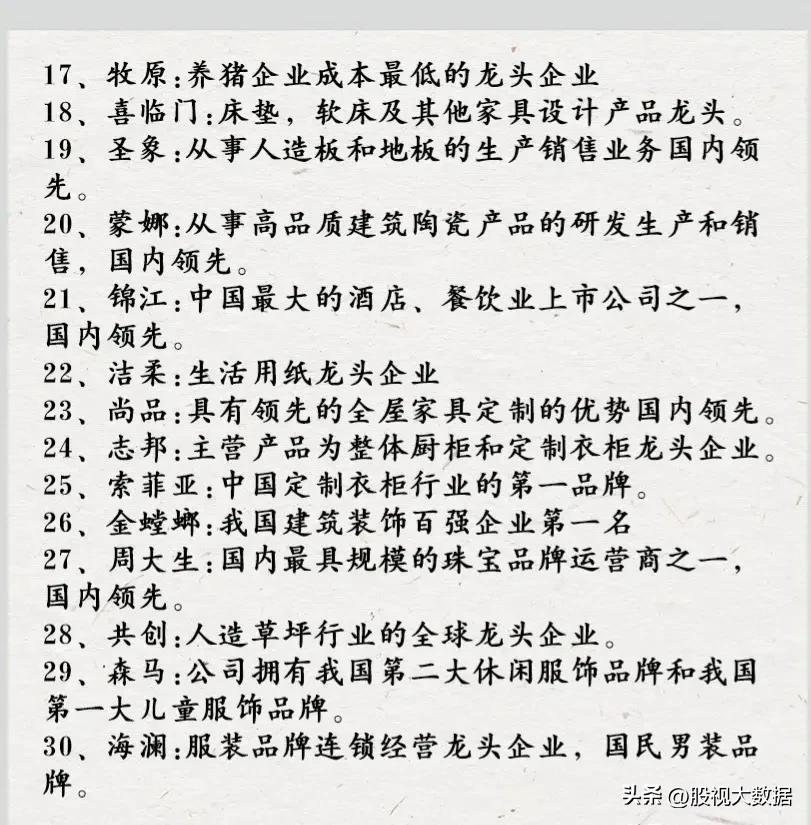 17、牧原:养猪企业成本最低的龙头企业
18、喜临门:床垫，软床及其他家具设计产品龙头。
19、圣象:从事人造板和地板的生产销售业务国内领
先。
20、蒙娜:从事高品质建筑陶瓷产品的研发生产和销
售，国内领先。
21、锦江:中国最大的酒店、餐饮业上市公司之一，
国内领先。
22、洁柔:生活用纸龙头企业
23、尚品:具有领先的全屋家具定制的优势国内领先。
24、志邦:主营产品为整体厨柜和定制衣柜龙头企业。
25、索菲亚:中国定制衣柜行业的第一品牌。
26、金螳螂:我国建筑装饰百强企业第一名
27、周大生:国内最具规模的珠宝品牌运营商之一，
国内领先。
28、共创:人造草坪行业的全球龙头企业。
29、森马:公司拥有我国第二大休闲服饰品牌和我国
第一大儿童服饰品牌。
30、海澜:服装品牌连锁经营龙头企业，国民男装品
牌。
头条 @股视大数据